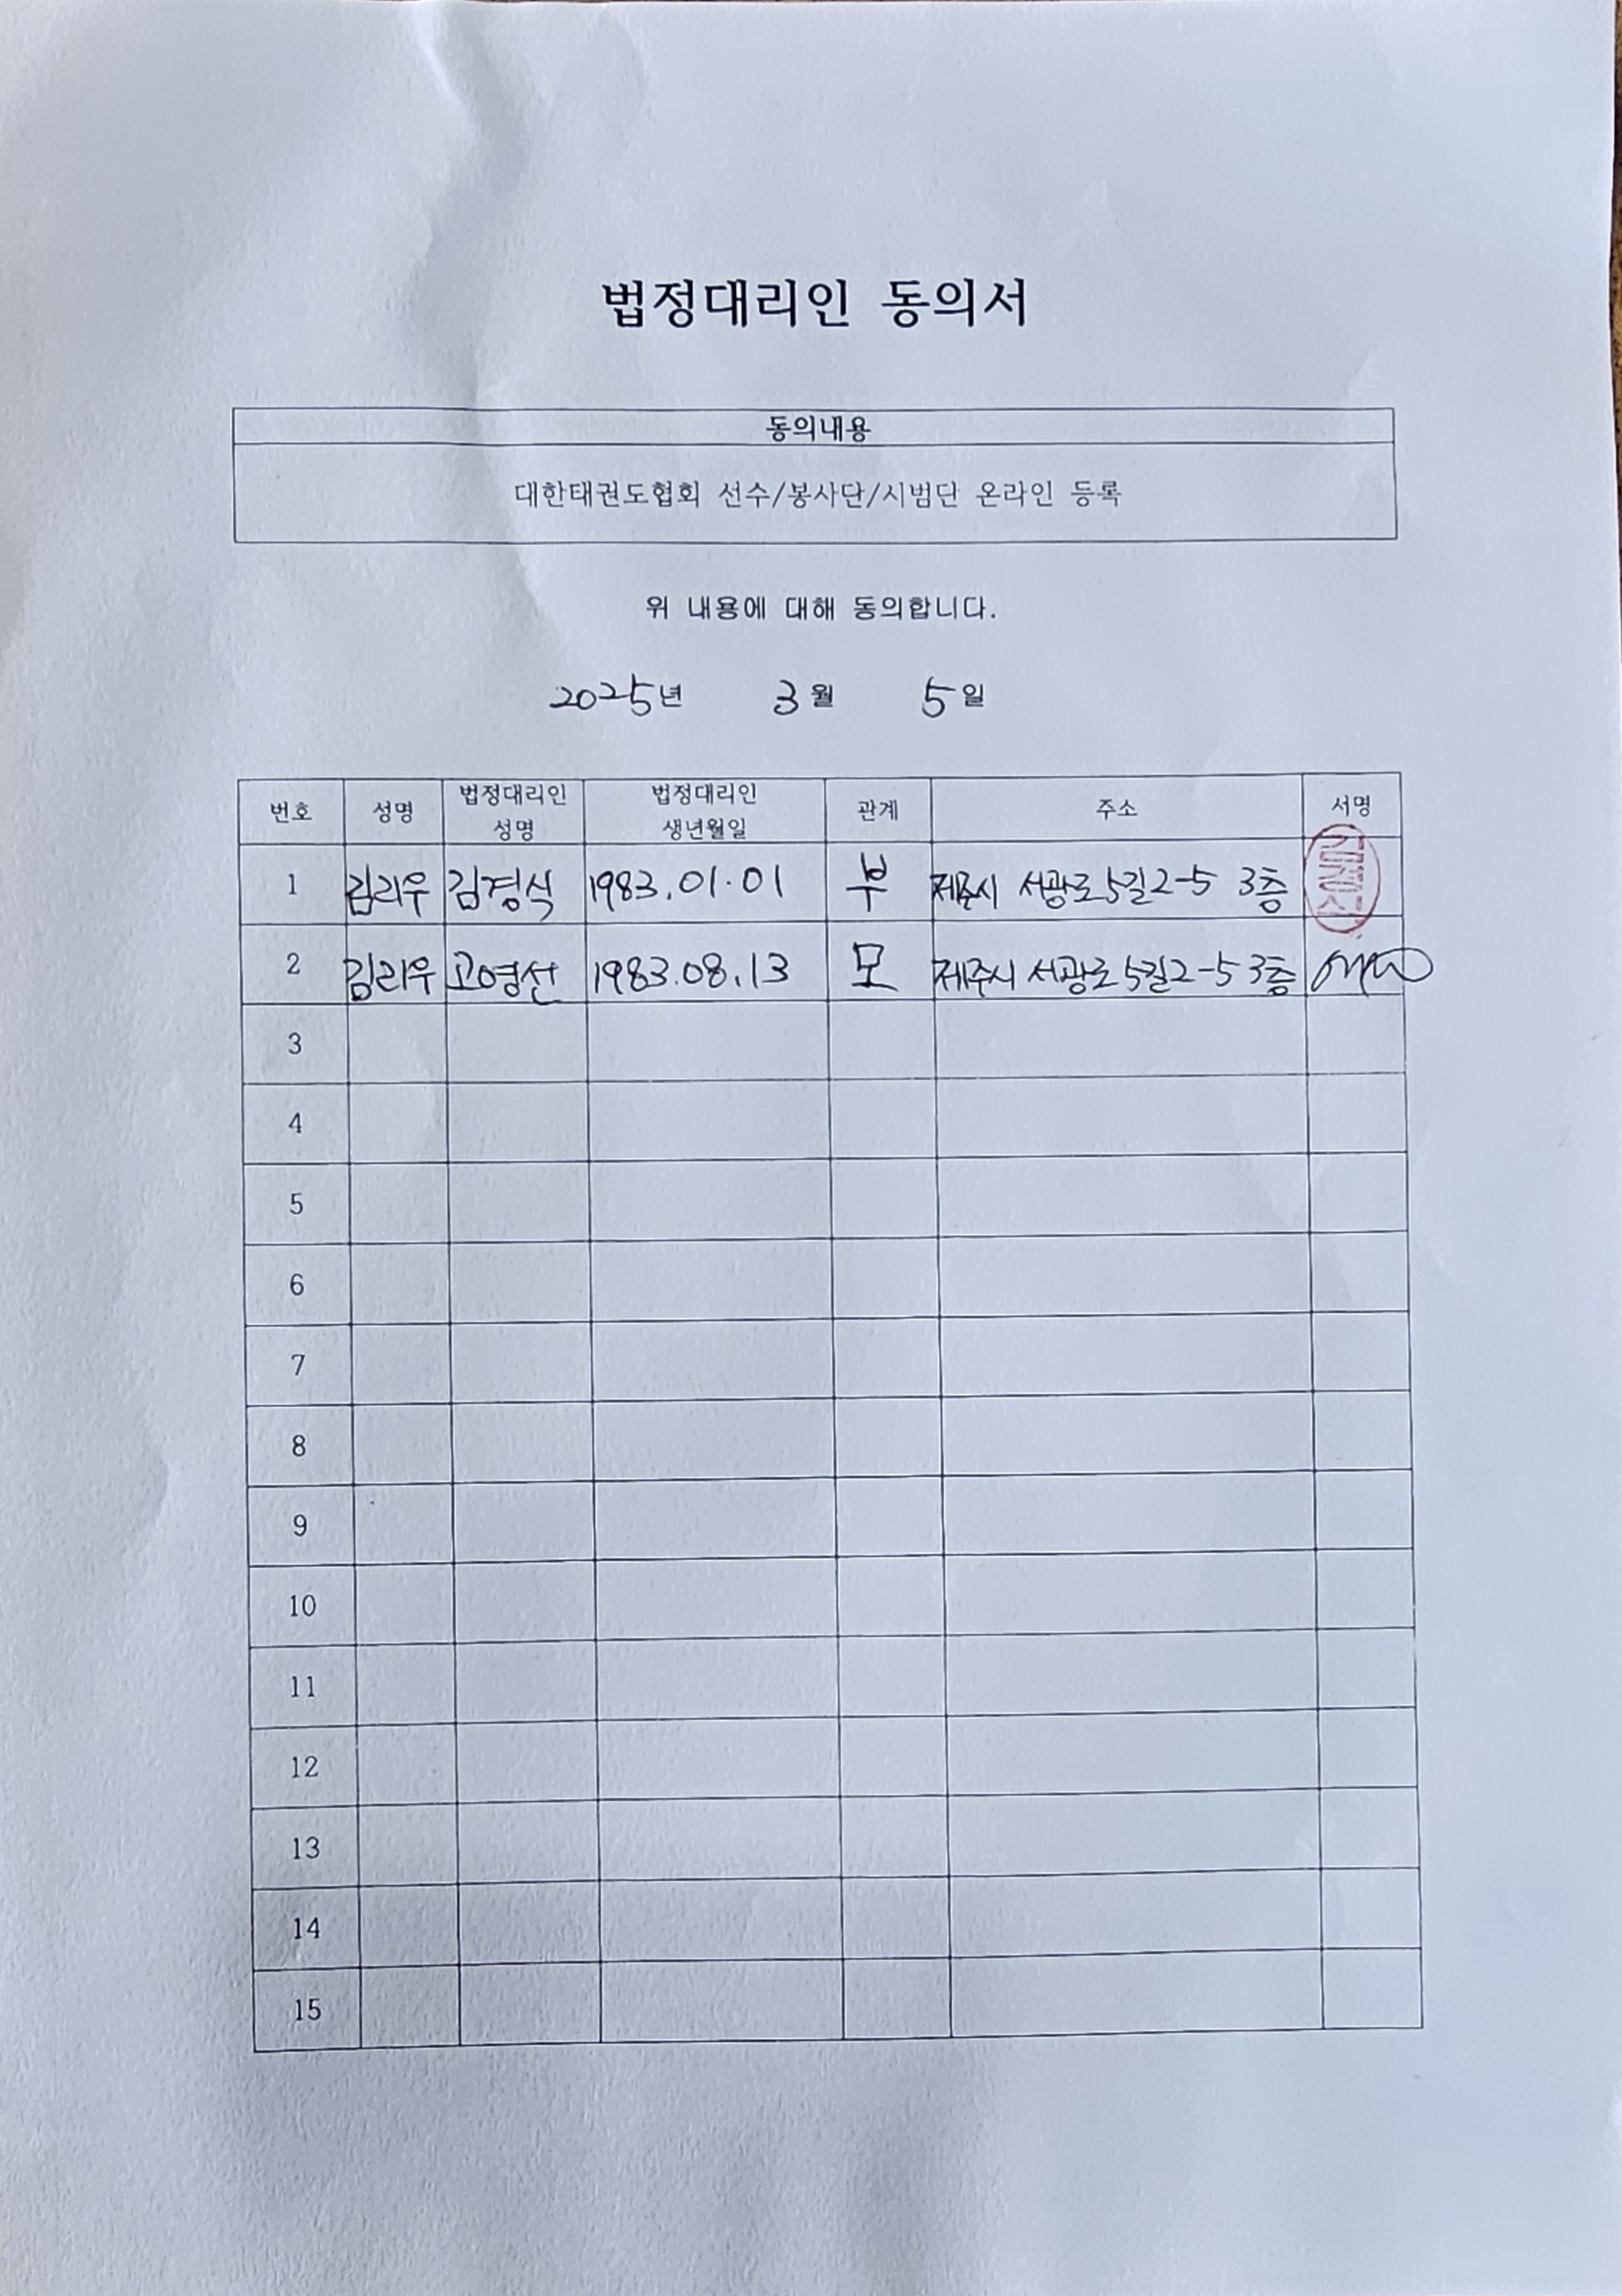 법정대리인 동의서
동의내용
대한태권도협회 선수/봉사단/시범단 온라인 등록
위 내용에 대해 동의합니다.
2025년 3월 5일
번호 성명 법정대리인 성명 법정대리인 생년월일 관계 주소 서명
1 김리우 김경식 1983.01.01 부 제주시 서광로5길2-5 3층 김경식
2 김리우 고영선 1983.08.13 모 제주시 서광로5길2-5 3층
3
4
5
6
7
8
9
10
11
12
13
14
15